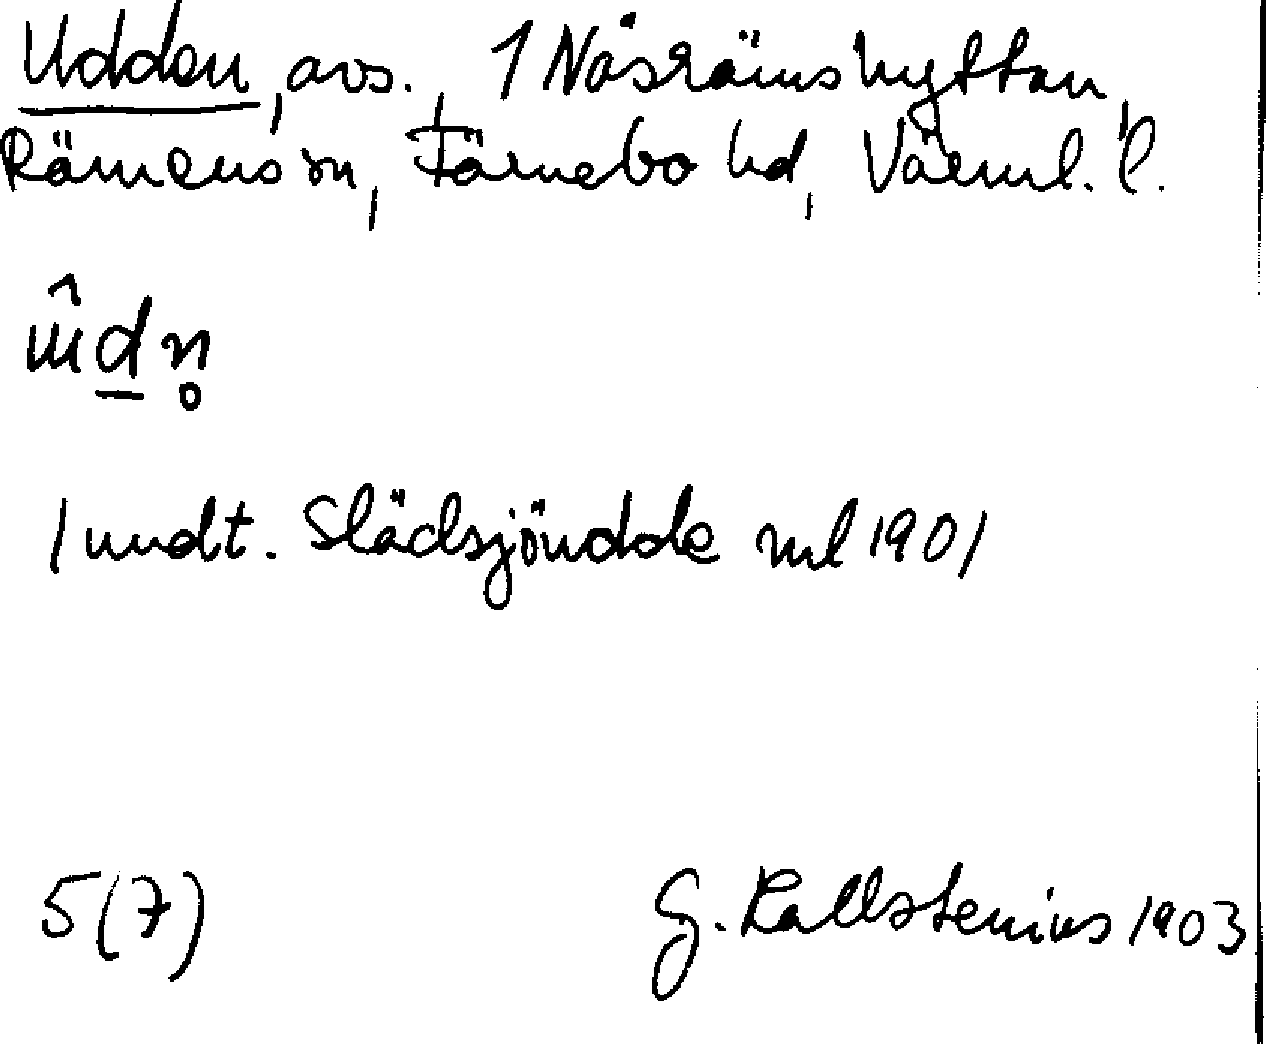 Udden, avs., 1 Näsrämshyttan,
Rämens sn, Färnebo hd, Värml. l.
Slädsjöudde ml 1901
5(7) G. Kallstenius 1903